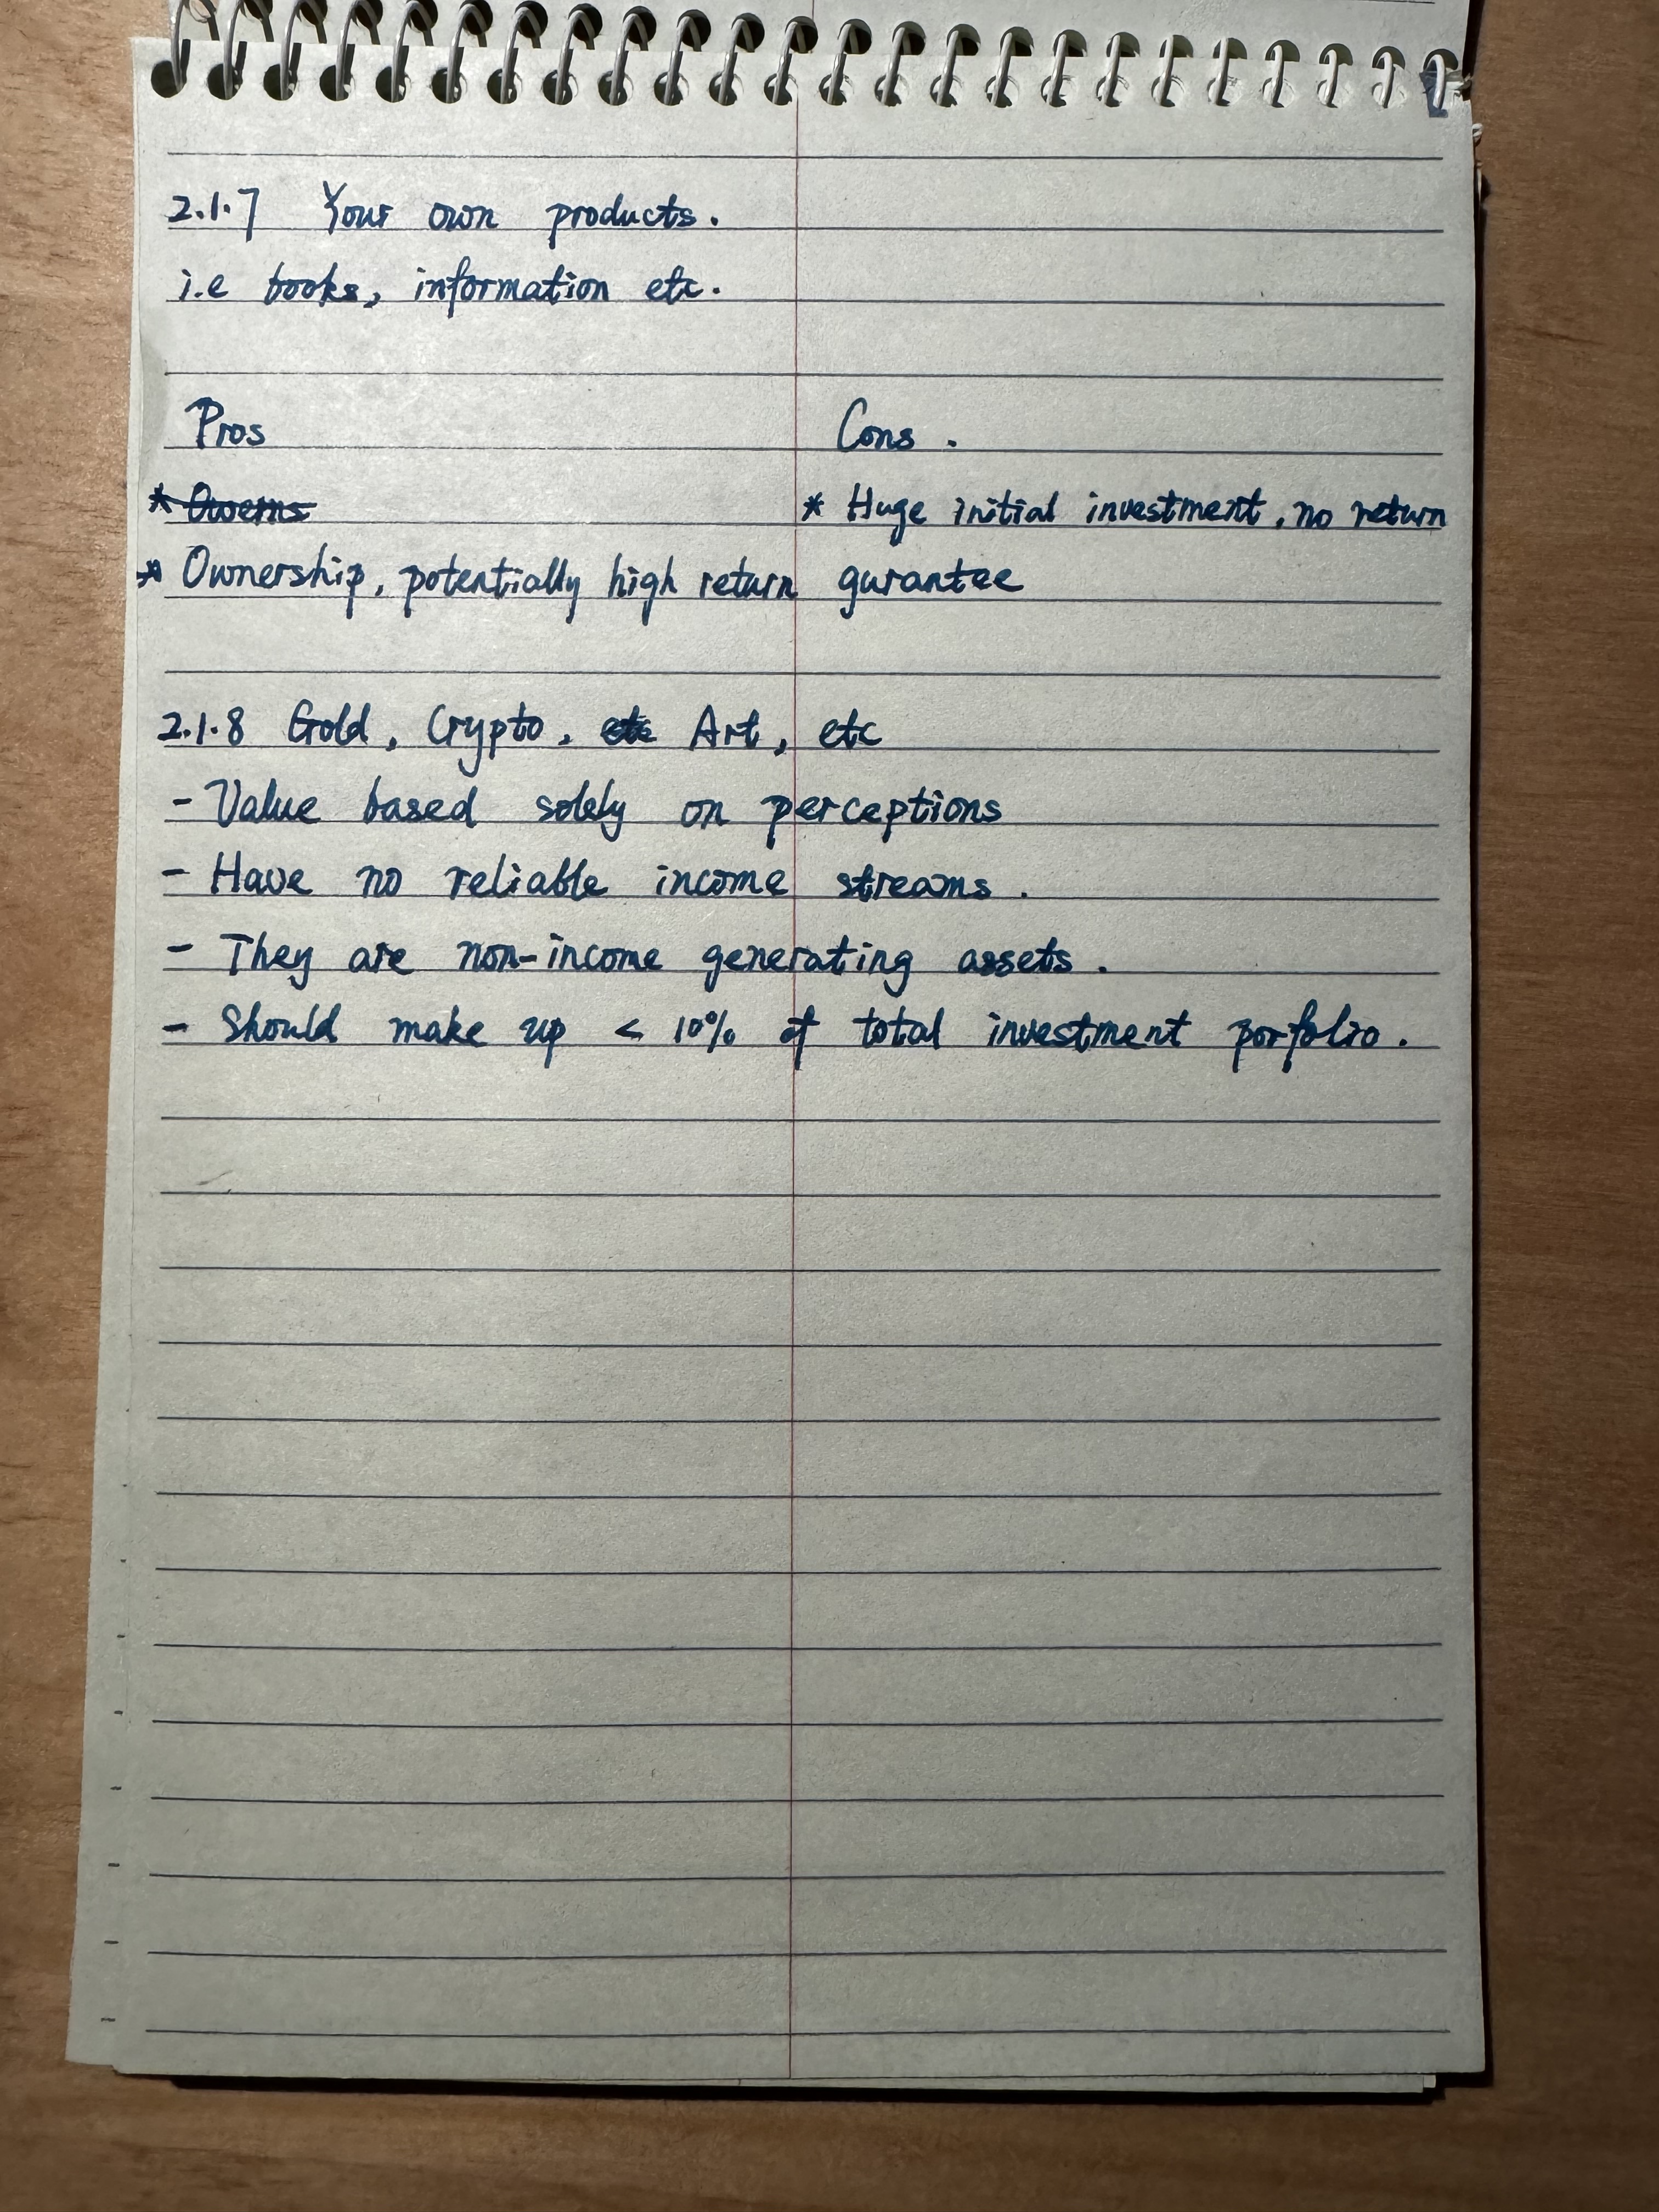 2.1.7 Your own products.
i.e books, information etc.
Pros
* Ownership, potentially high return
Cons.
* Huge initial investment, no return
gurantee
2.1.8 Gold, Crypto, etc Art, etc
- Value based solely on perceptions
- Have no reliable income streams.
- They are non-income generating assets.
- Should make up < 10% of total investment porfolio.